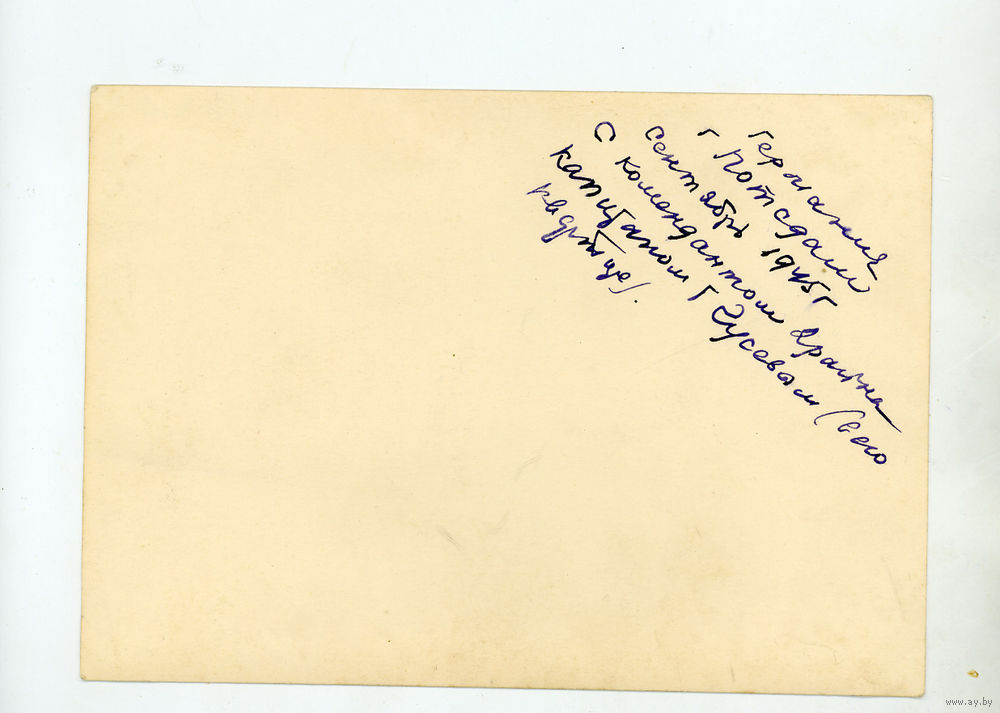 Германия
г Потсдам
Сентябрь 1945г
С комендантом храма
капитаном Г Гусевым (в его
квартире).
www.ay.by